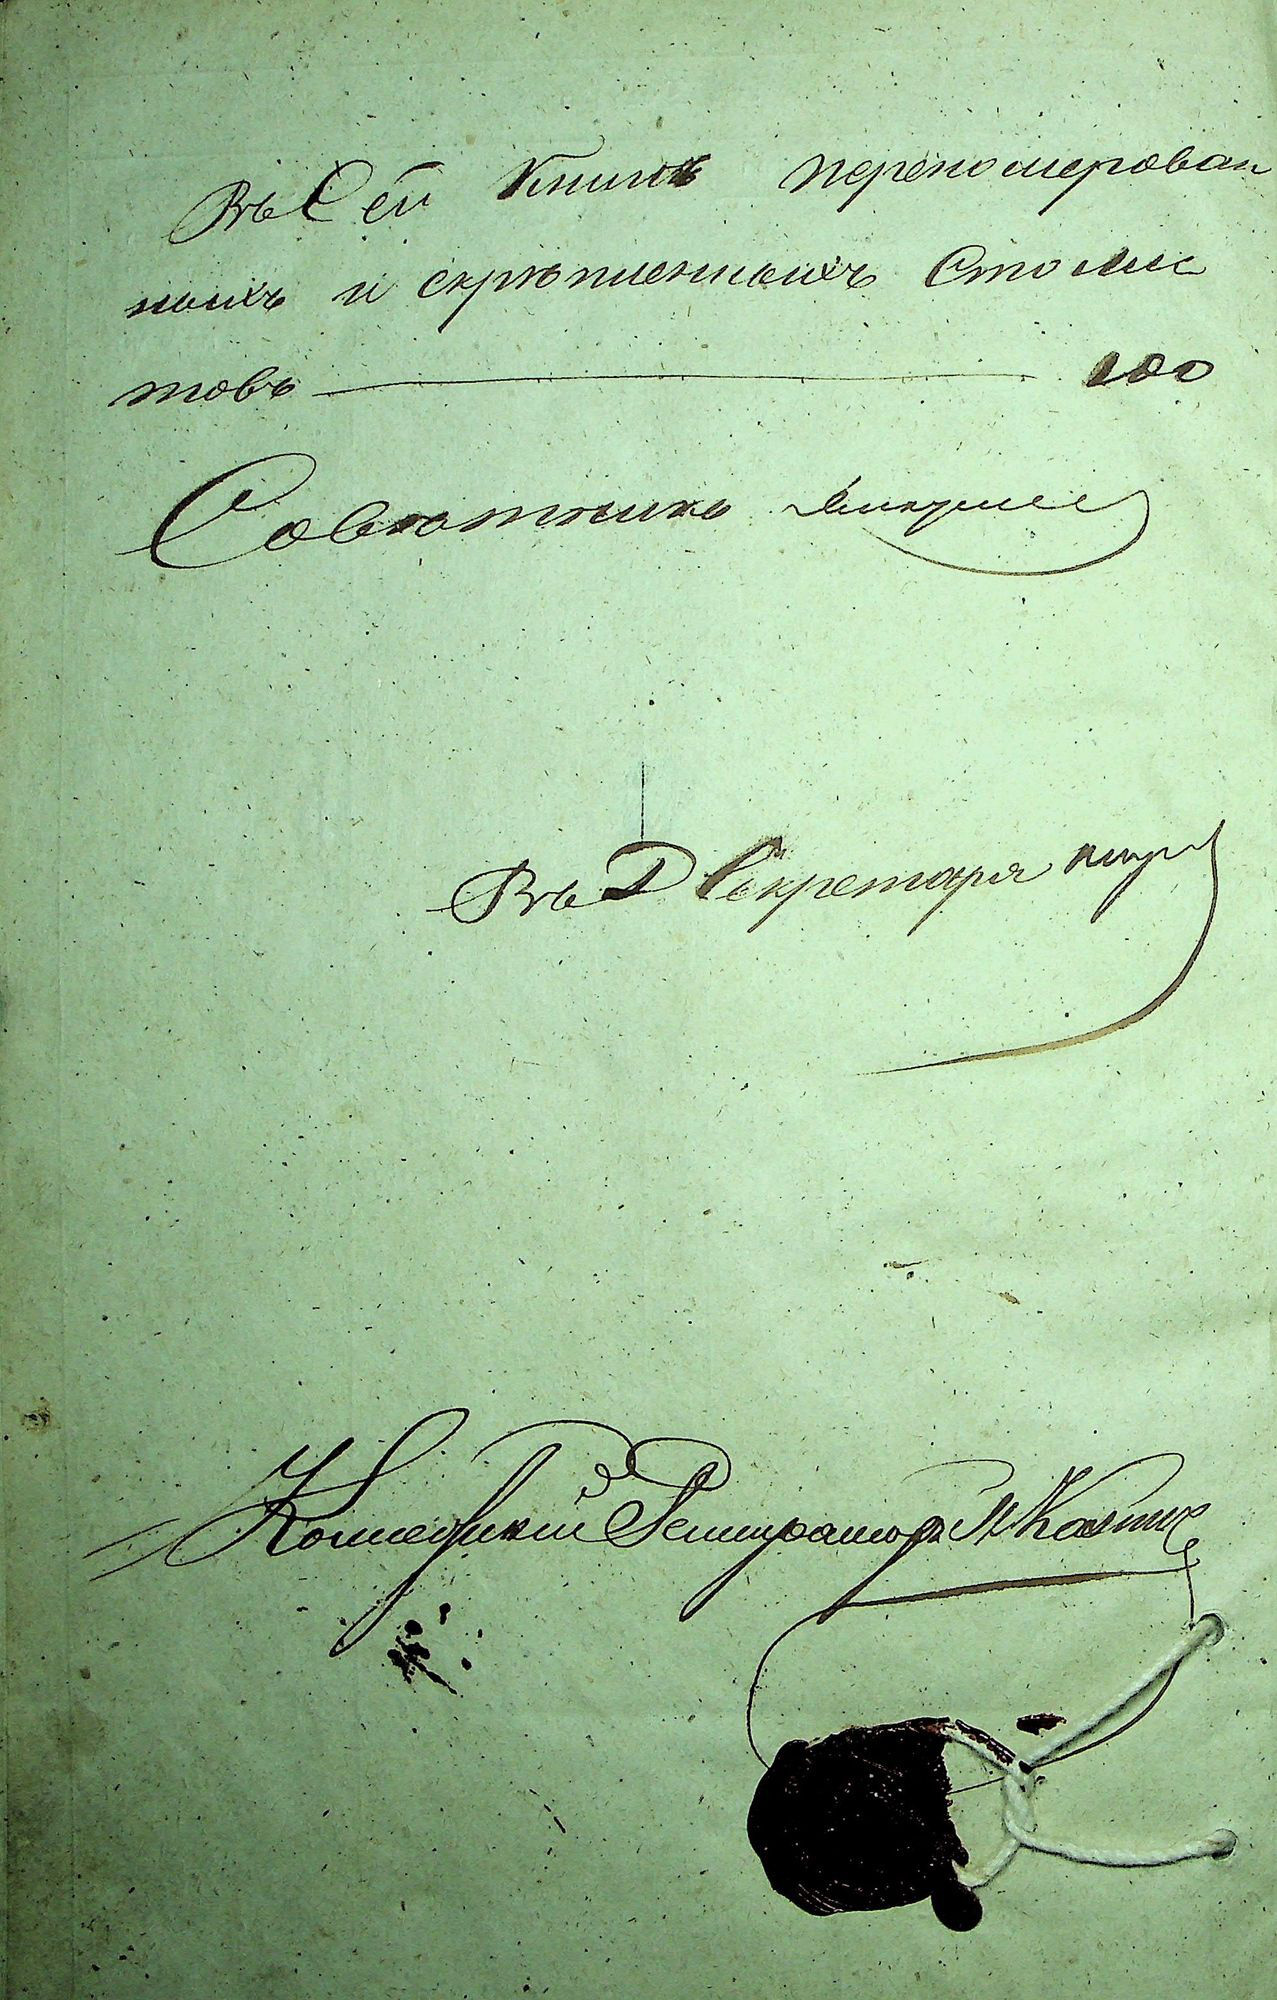 Въ Сей Книгѣ перепомерован
ныхъ и скрѣпленныхъ Сто лис
товъ 100
Совѣтникъ
Въ Д Секретаря
Коллежскій Регистраторъ